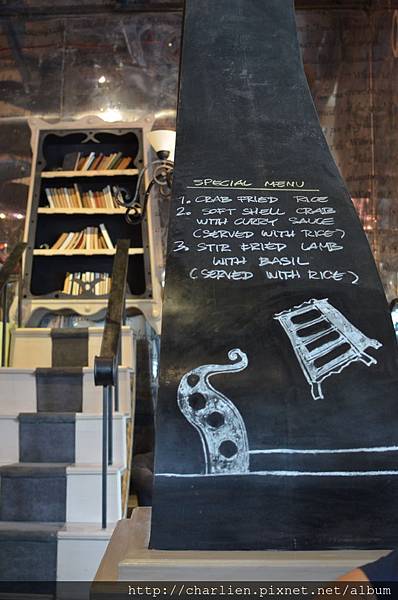 SPECIAL MENU
1. CRAB FRIED RICE
2. SOFT SHELL CRAB
WITH CURRY SAUCE
(SERVED WITH RICE)
3. STIR FRIED LAMB
WITH BASIL
(SERVED WITH RICE)
http://charlien.pixnet.net/album